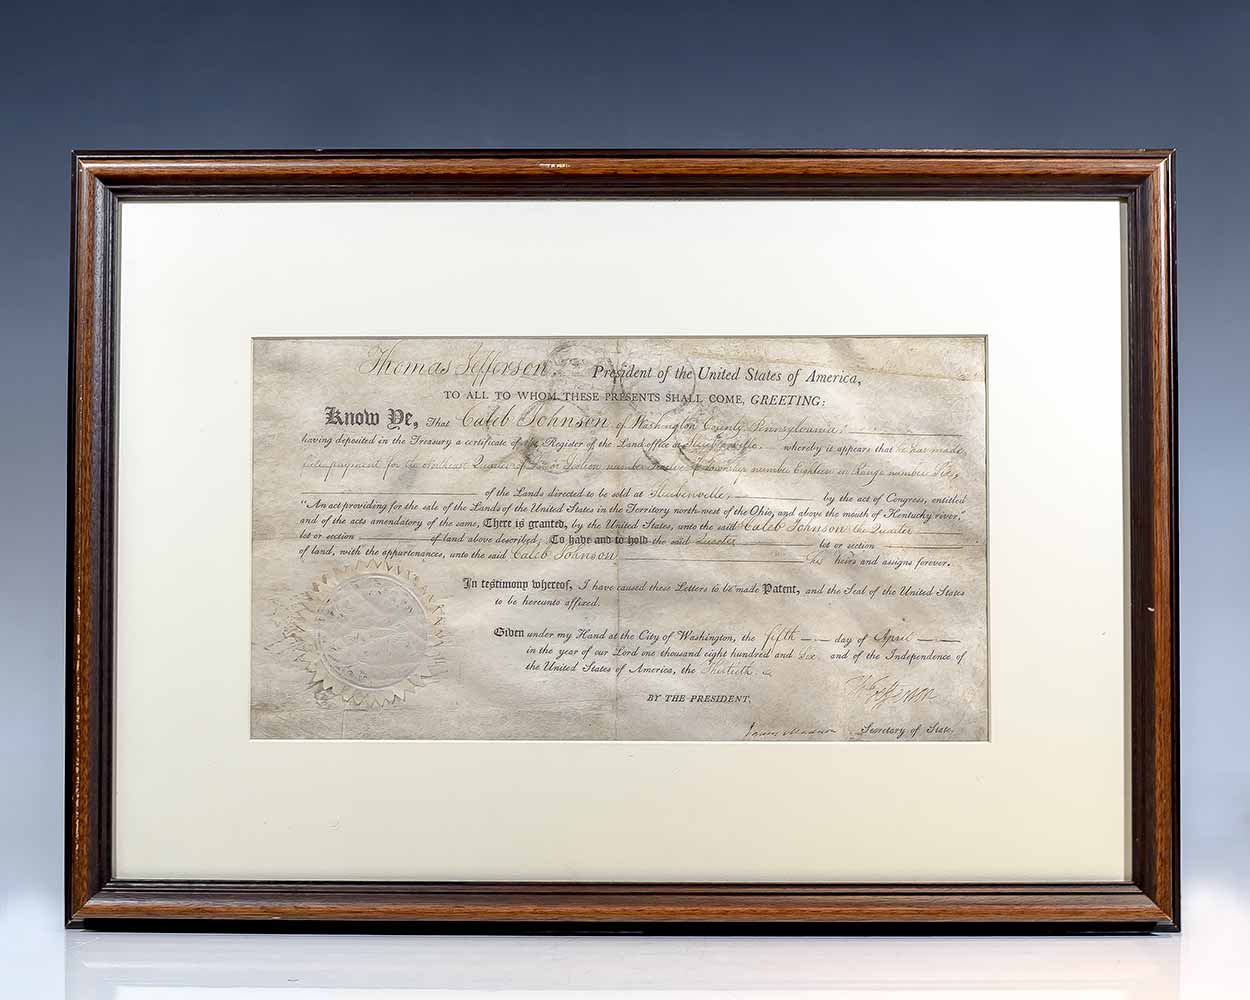 Thomas Jefferson, President of the United States of America,
TO ALL TO WHOM THESE PRESENTS SHALL COME, GREETING:
Know Ye, That Caleb Johnson of Washington County Pennsylvania,
having deposited in the Treasury a certificate of the Register of the Land office at Steubenville whereby it appears that he has made
full payment for the Quarter of Section number Twelve of Township number Eighteen in Range number Six,
of the Lands directed to be sold at Steubenville, by the act of Congress, entitled
"An act providing for the sale of the Lands of the United States in the Territory north-west of the Ohio, and above the mouth of Kentucky river,"
and of the acts amendatory of the same, There is granted, by the United States, unto the said Caleb Johnson the Quarter
lot or section of land above described; To have and to hold the said Quarter lot or section
of land, with the appurtenances, unto the said Caleb Johnson his heirs and assigns forever.
In testimony whereof, I have caused these Letters to be made Patent, and the Seal of the United States
to be hereunto affixed.
Given under my Hand at the City of Washington, the fifth day of April
in the year of our Lord one thousand eight hundred and six and of the Independence of
the United States of America, the Thirtieth.
Th Jefferson
BY THE PRESIDENT,
James Madison Secretary of State.